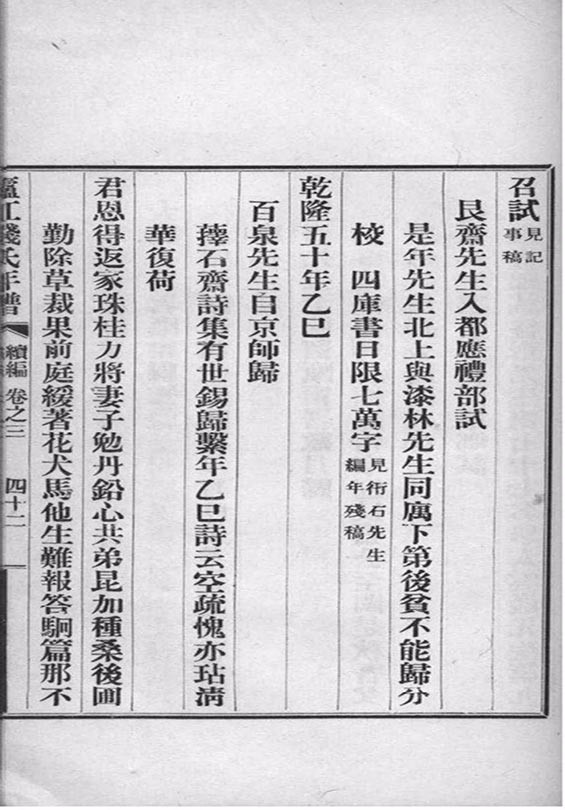 召試見記事稿
艮齋先生入都應禮部試
是年先生北上與漆林先生同厲下第後貧不能歸分
校　四庫書日限七萬字見衎石先生編年殘稿
乾隆五十年乙巳
百泉先生自京師歸
蘀石齋詩集有世錫歸繫年乙巳詩云空疏愧亦玷淸
華復荷
君恩得返家珠桂力將妻子勉丹鉛心共弟昆加種桑後圃
勤除草裁果前庭緩著花犬馬他生難報答駉篇那不
廬江錢氏年譜　續編　卷之三　四十二